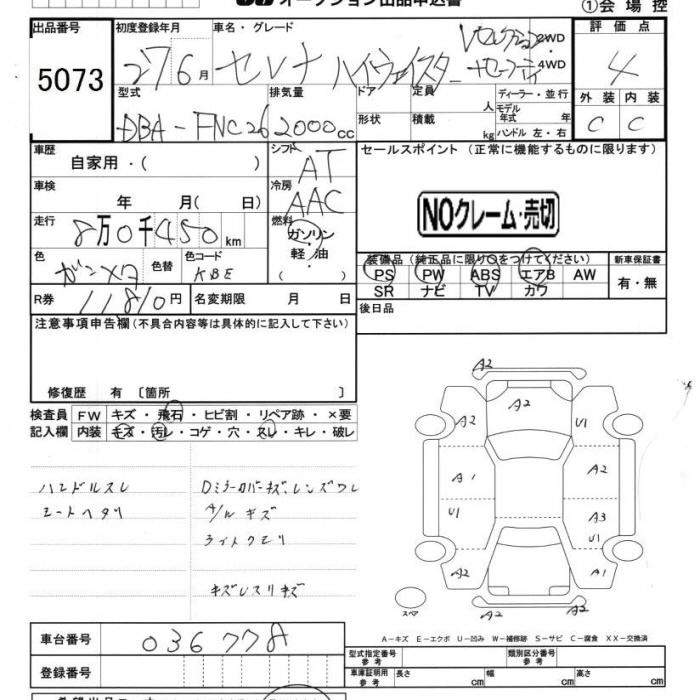 オークション出品申込書 ①会場控
出品番号 初度登録年月 車名・グレード 評価点
5073 27 6月 セレナ ハイウェイスター Vセレクション +セーフティ 2WD 4WD 4
型式 排気量 ドア 定員 人 ディーラー・並行 外装 内装
DBA-FNC26 2000cc 形状 積載 kg モデル年式 年 ハンドル 左・右 C C
車歴 シフト セールスポイント (正常に機能するものに限ります)
自家用・( ) AT
車検 冷房
年 月( 日) AAC NOクレーム・売切
走行 燃料
8万0千450km ガソリン・軽・油・( )
色 色替 色コード 装備品 (純正品に限り○をつけてください) 新車保証書
ガンメタ KBE PS PW ABS エアB AW 有・無
SR ナビ TV カワ
R券 11810円 名変期限 月 日 後日品
注意事項申告欄(不具合内容等は具体的に記入して下さい)
修復歴 有 〔箇所 〕
検査員 FW キズ・飛石・ヒビ割・リペア跡・×要
記入欄 内装 キズ・汚レ・コゲ・穴・スレ・キレ・破レ
ハンドルスレ Dミラーカバーキズ、レンズワレ
シートヘタリ A/Wキズ
ライトクモリ
キズレスリキズ
A2
A2
A2 U1
A1 A2
U1 A3
U1
A2 A1
スペア A2 A2
A-キズ E-エクボ U-凹み W-補修跡 S-サビ C-腐食 XX-交換済
車台番号 036778 型式指定番号 参考 類別区分番号 参考
登録番号 車庫証明用 参考 長さ cm 幅 cm 高さ cm